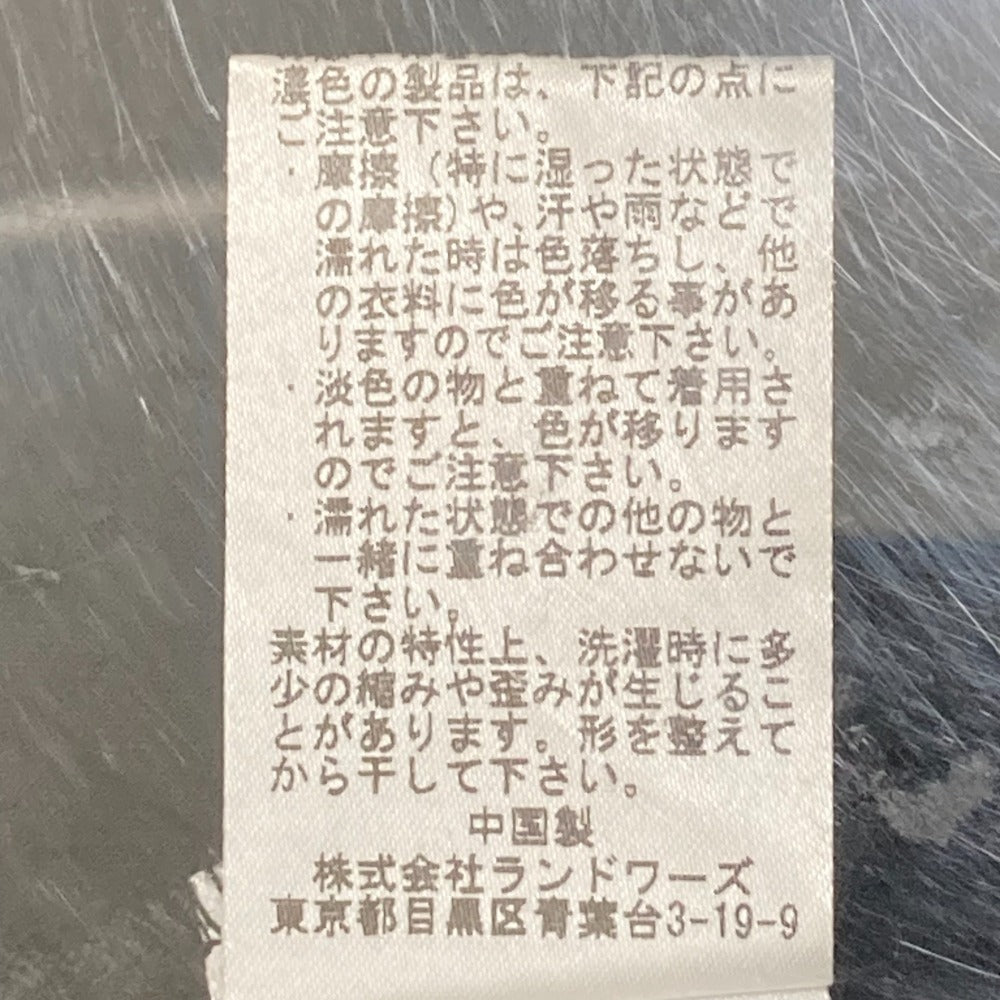 濃色の製品は、下記の点に
ご注意下さい。
・摩擦(特に湿った状態で
の摩擦)や、汗や雨などで
濡れた時は色落ちし、他
の衣料に色が移る事があ
りますのでご注意下さい。
・淡色の物と重ねて着用さ
れますと、色が移ります
のでご注意下さい。
・濡れた状態での他の物と
一緒に重ね合わせないで
下さい。
素材の特性上、洗濯時に多
少の縮みや歪みが生じるこ
とがあります。形を整えて
から干して下さい。
中国製
株式会社ランドワーズ
東京都目黒区青葉台3-19-9